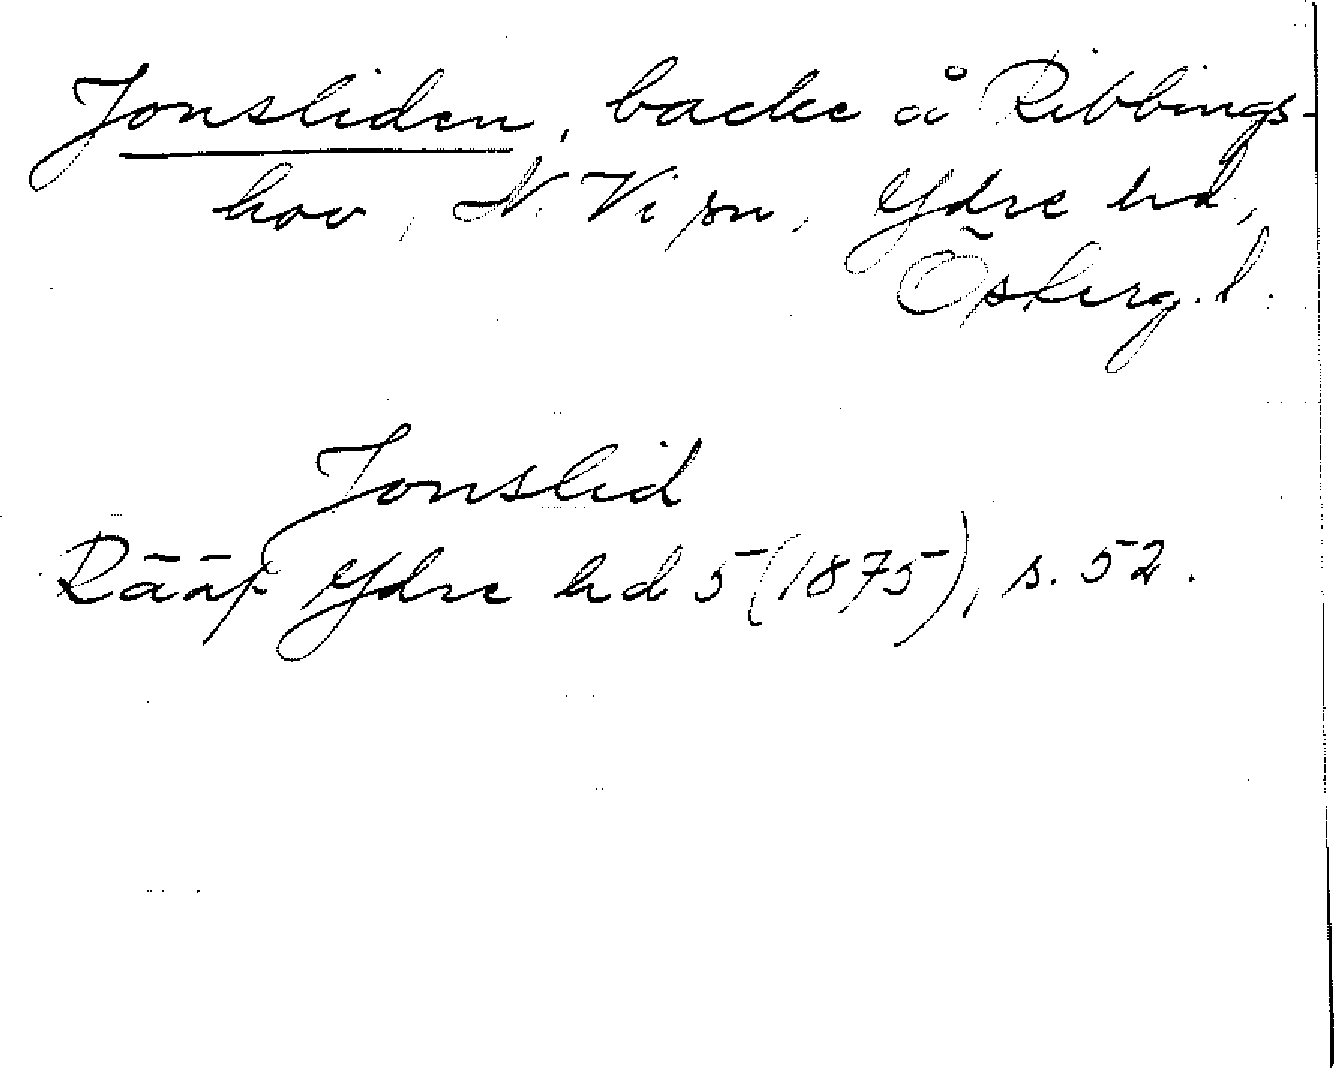 Jonsliden, backe å Ribbings-
hov, N. Vi sn, Ydre hd,
Österg. l.
Jonslid
Rääf Ydre hd 5 (1875), s. 52.